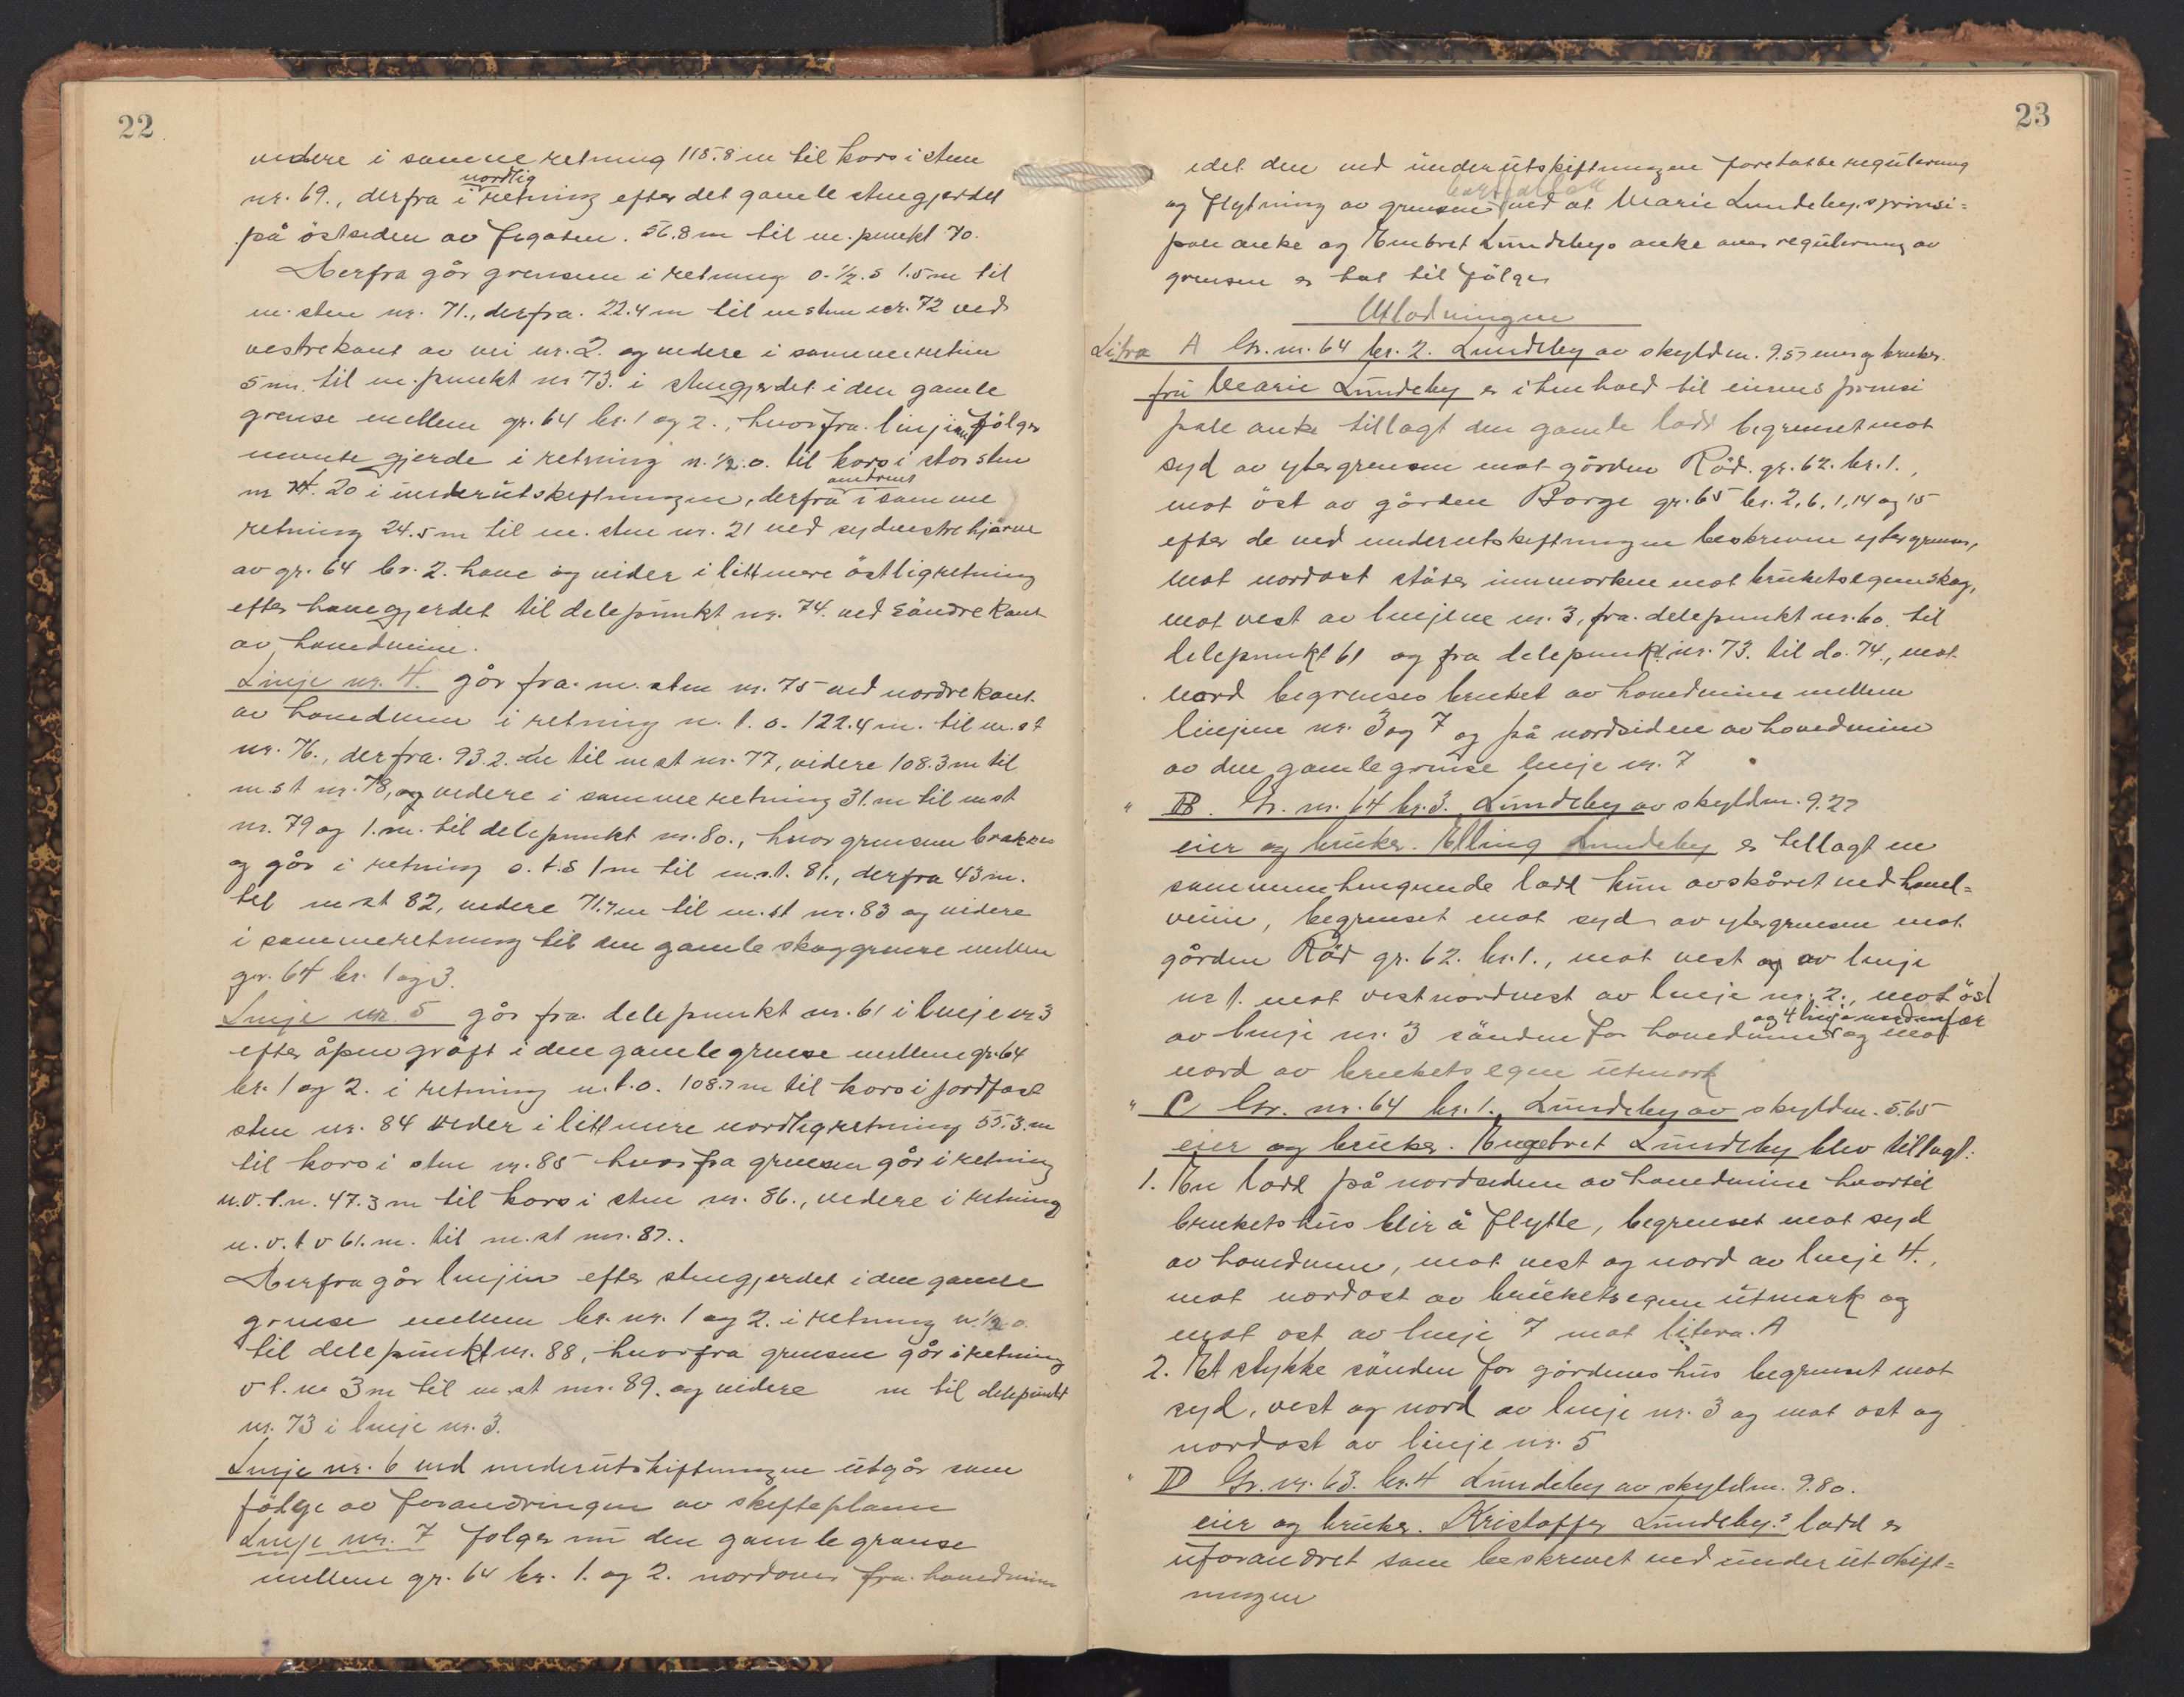 22
videre i samme retning 115.8 m til kors i sten
nordlig
nr. 69., derfra i retning efter det gamle stengjerdet
på östsiden av fegaten. 56.8 m til m. punkt 70.
Derfra går grensen i retning o. ½. s 1.5 m til
m. sten nr. 71., derfra. 22.4 m til m sten nr. 72 ved
vestrekant av vei nr. 2. og videre i samme retnin
5 m. til m. punkt nr 73. i stengjerdet i den gamle
grense mellem gr. 64 br. 1 og 2., hvorfra linjen följer
nevnte gjerde i retning n. ½. o. til kors i stor sten
nr 20 i underutskiftningen, derfra i samme
retning 24.5 m til m. sten nr. 21 ved sydvestre hjörne
av gr. 64 br. 2. have og vider i litt mere östlig retning
efter havegjerdet til delepunkt nr. 74. ved söndre kant
av hovedveien.
Linje nr. 4. går fra m. sten nr. 75 ved nordre kant.
av hovedveien i retning n. t. o. 122.4 m. til m. st
nr. 76., derfra. 93.2. m til m st nr. 77, videre 108.3 m til
m. st nr. 78, og videre i samme retning 31. m til m st
nr. 79 og 1. m. til delepunkt nr. 80., hvor grensen brækkes
og går i retning o. t. s 1 m til m. st. 81., derfra 43 m.
til m st 82, videre 71.7 m til m. st nr. 83 og videre
i samme retning til den gamle skoggrense mellem
gr. 64 br. 1 og 3.
Linje nr. 5 går fra delepunkt nr. 61 i linje nr 3
efter åpen gröft i den gamle grense mellem gr. 64
br. 1 og 2. i retning n. t. o. 108.7 m til kors i jordfast
sten nr. 84 vider i litt mere nordlig retning 55.3. m
til kors i sten nr. 85 hvorfra grensen går i retning
n. v. t. n. 47.3 m til kors i sten nr. 86., videre i retning
n. v. t v 61. m. til m. st nr. 87..
Derfra går linjen efter stengjerdet i den gamle
grense mellem br. nr. 1 og 2. i retning n. ½ o.
til delepunkt nr. 88, hvorfra grensen går i retning
v t. n 3 m til m. st nr. 89. og videre m til delepunkt
nr. 73 i linje nr. 3.
Linje nr. 6 ved underutskiftningen utgår som
fölge av forandringen av skifteplanen
Linje nr. 7 folger nu den gamle grense
mellem gr. 64 br. 1. og 2. nordover fra hovedveien
23
idet den ved underutskiftningen foretatte regulering
bortfaller
og flytning av grensen ved at Marie Lundebys prinsi=
pale anke og Embret Lundebys anke over regulering av
grensen er tat til fölge
Utlodningen
Litra A Gr. nr. 64 br. 2. Lundeby av skyldm. 9.57 eier og bruker.
fru Marie Lundeby er i henhold til eierens prinsi
pale anke tillagt den gamle lodd begrenset mot
syd av ytergrensen mot gården Råd. gr. 62. br. 1.,
mot öst av gården Borge gr. 65 br. 2, 6, 1, 14 og 15
efter de ved underutskiftningen beskrevne ytergrenser,
mot nordost stöter innmarken mot brukets egen skog,
mot vest av linjene nr. 3, fra. delepunkt nr. 60. til
delepunkt 61 og fra delepunkt nr. 73. til do. 74., mot
nord begrenses bruket av hovedveien mellem
linjene nr. 3 og 7 og på nordsiden av hovedveien
av den gamle grense linje nr. 7
" B. Gr. nr. 64 br. 3. Lundeby av skyldm. 9.27
eier og bruker. Elling Lundeby er tillagt en
sammenhengende lodd kun avskåret ved hoved=
veien, begrenset mot syd av ytergrensen mot
gården Råd gr. 62. br. 1., mot vest av linje
nr 1. mot vestnordvest av linje nr. 2., mot öst
og 4 linje nordenfor
av linje nr. 3 sönden for hovedveien og mot
nord av brukets egen utmark
" C Gr. nr. 64 br. 1. Lundeby av skyldm. 5.65
eier og bruker. Engebret Lundeby blev tillagt:
1. En lodd på nordsiden av hovedveien hvortil
brukets hus blir å flytte, begrenset mot syd
av hovedveien, mot vest og nord av linje 4.,
mot nordost av brukets egen utmark og
mot ost av linje 7 mot litera. A
2. Et stykke sönden for gårdenes hus begrenset mot
syd, vest og nord av linje nr. 3 og mot ost og
nordost av linje nr. 5
" D Gr. nr. 63. br. 4 Lundeby av skyldm. 9.80.
eier og bruker. Kristoffer Lundeby.s lodd er
uforandret som beskrevet ved underutskift=
ningen